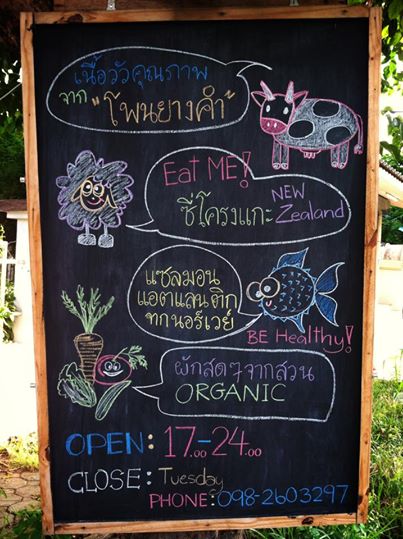 เนื้อวัวคุณภาพ
จาก "โพนยางคำ"
Eat ME!
ซี่โครงแกะ NEW
Zealand
แซลมอน
แอตแลนติก
ทกนอร์เวย์
BE Healthy!
ผักสดๆจากสวน
ORGANIC
OPEN: 17.00-24.00
CLOSE: Tuesday
PHONE: 098-2603297